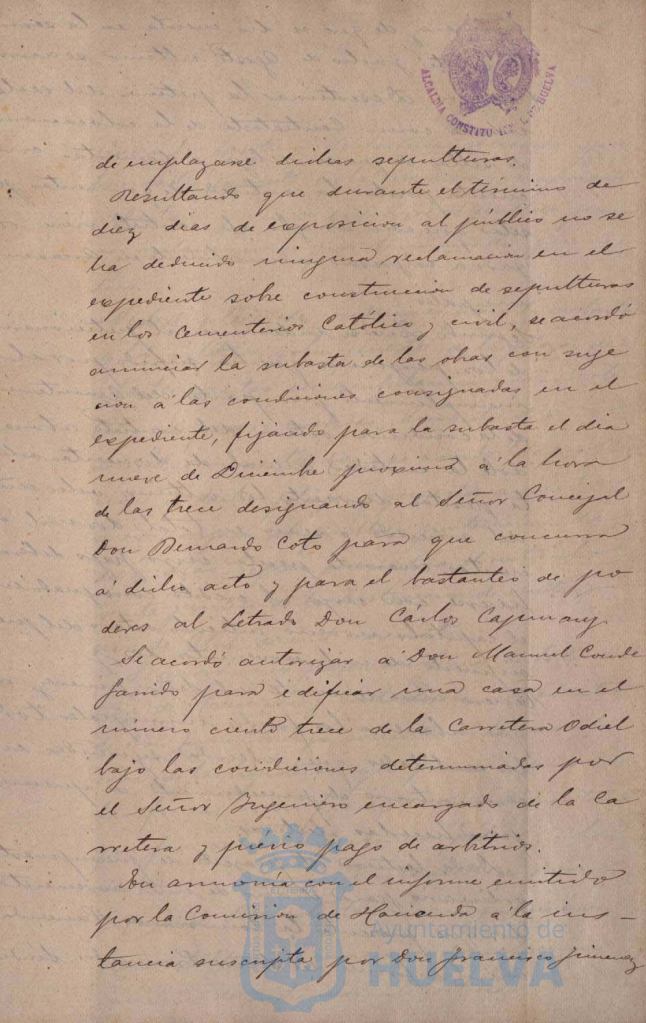 ALCALDIA CONSTITUCIONAL DE HUELVA
de emplazarse dichas sepulturas.
Resultando que durante el término de
diez dias de exposicion al público no se
ha deducido ninguna reclamacion en el
expediente sobre construccion de sepulturas
en los Cementerios Católico y civil, se acordó
anunciar la subasta de las obras con suge
cion á las condiciones consignadas en el
expediente, fijando para la subasta el dia
nueve de Diciembre próximo á la hora
de las trece designando al Señor Concejal
Don Bernardo Coto para que concurra
á dicho acto y para el bastanteo de po
deres al Letrado Don Cárlos Capmany.
Se acordó autorizar á Don Manuel Conde
Garrido para edificar una casa en el
número ciento trece de la Carretera Odiel
bajo las condiciones determinadas por
el Señor Ingeniero encargado de la Ca
rretera y previo pago de arbitrios.
En armonía con el informe emitido
por la Comision de Hacienda á la ins-
tancia suscripta por Don Francisco Jimenez
Ayuntamiento de
HUELVA